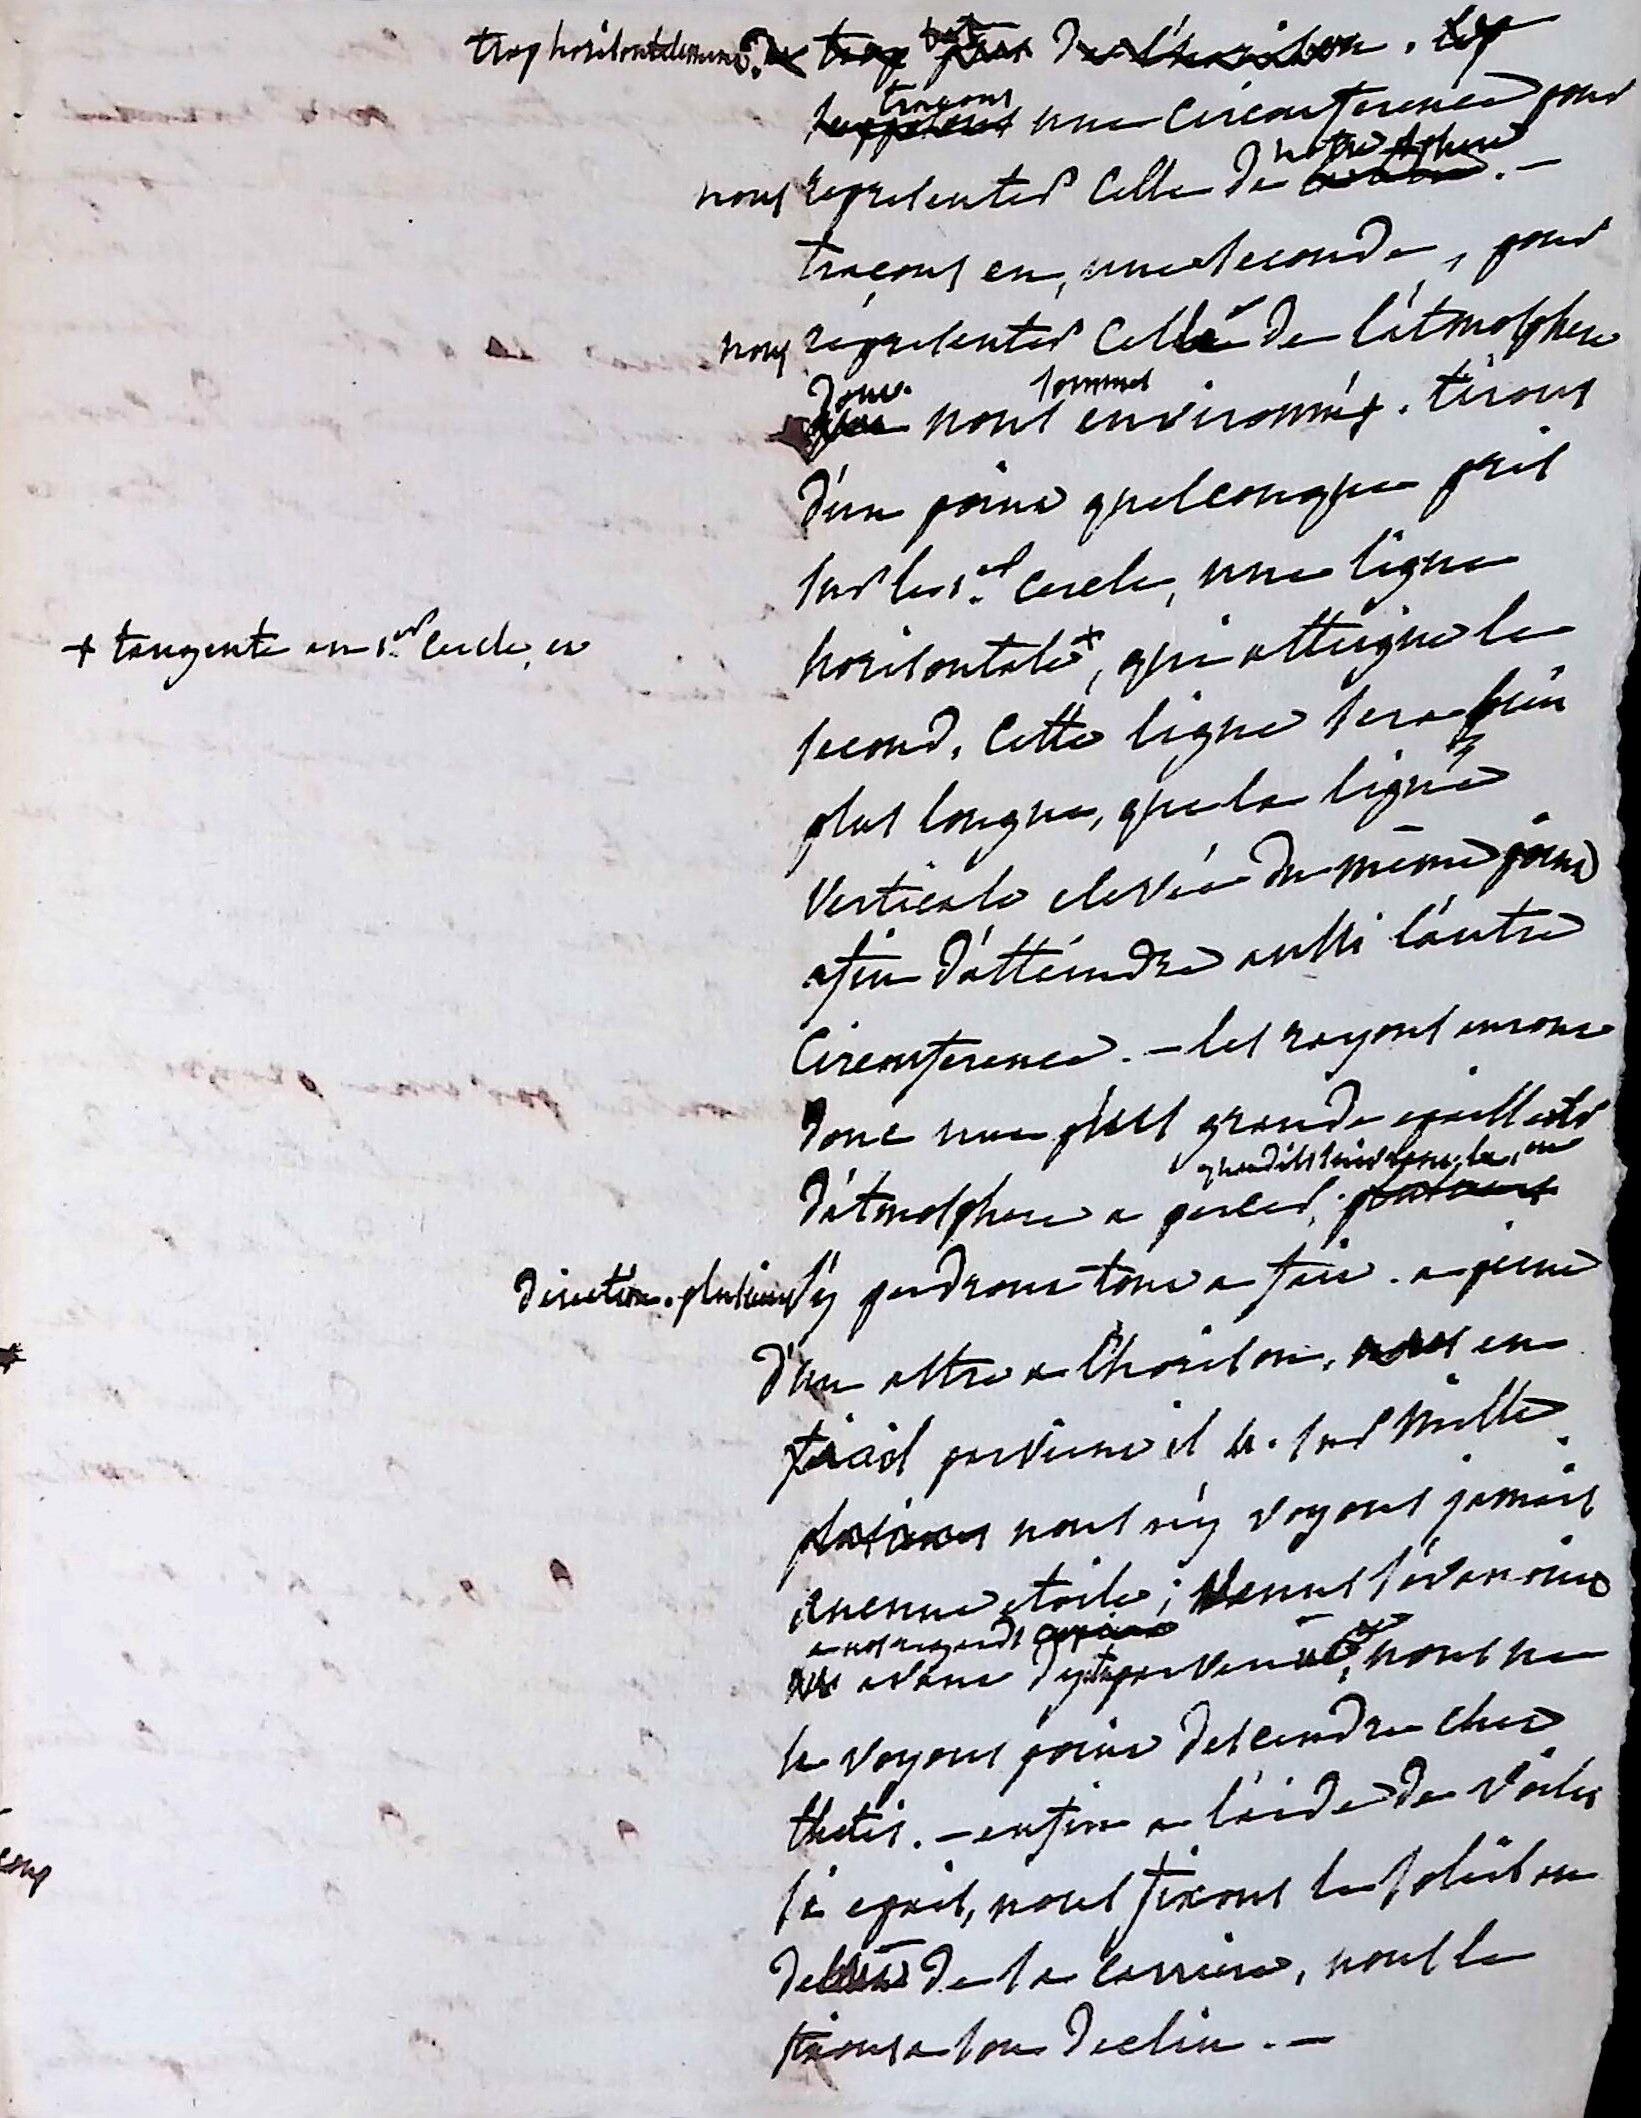 trop horisontalement. de trop bas pres de l'horison.
supposons traçons une circonference pour
nous representer celle de notre sphere. —
traçons en, une seconde, pour
nous répresenter celle de l'atmosphere
dont nous sommes environnés. tirons
d'un point quelconque pris
sur le 1.er cercle, une ligne
horisontale +, qui atteigne le
+ tangente au 1.er cercle, et
second. cette ligne sera bien
plus longue, que la ligne
verticale elevée du même point
afin d'atteindre aussi l'autre
circonference. — les rayons auront
donc une plus grande epaisseur
d'atmosphere a percer, quand ils suivront la, une
direction. plusieurs s'y perdront tout a fait. a peine
d'un astre a l'horison, nous en
parvient il un. sur mille
plusieurs nous n'y voyons jamais
aucune etoile; Venus s'evanouit
a nos regards
avant d'y être parvenue, nous ne
la voyons point descendre chez
thetis. — enfin a l'aide de voiles
si epais, nous fixons le soleil au
debut de sa carriere, nous le
fixons a son declin. —